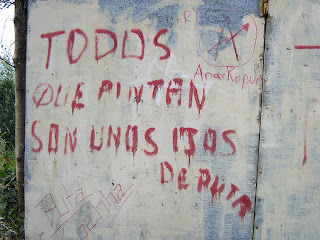 TODOS
QUE PINTAN
SON UNOS IJOS
DE PUTA
R
A
Anarkopun